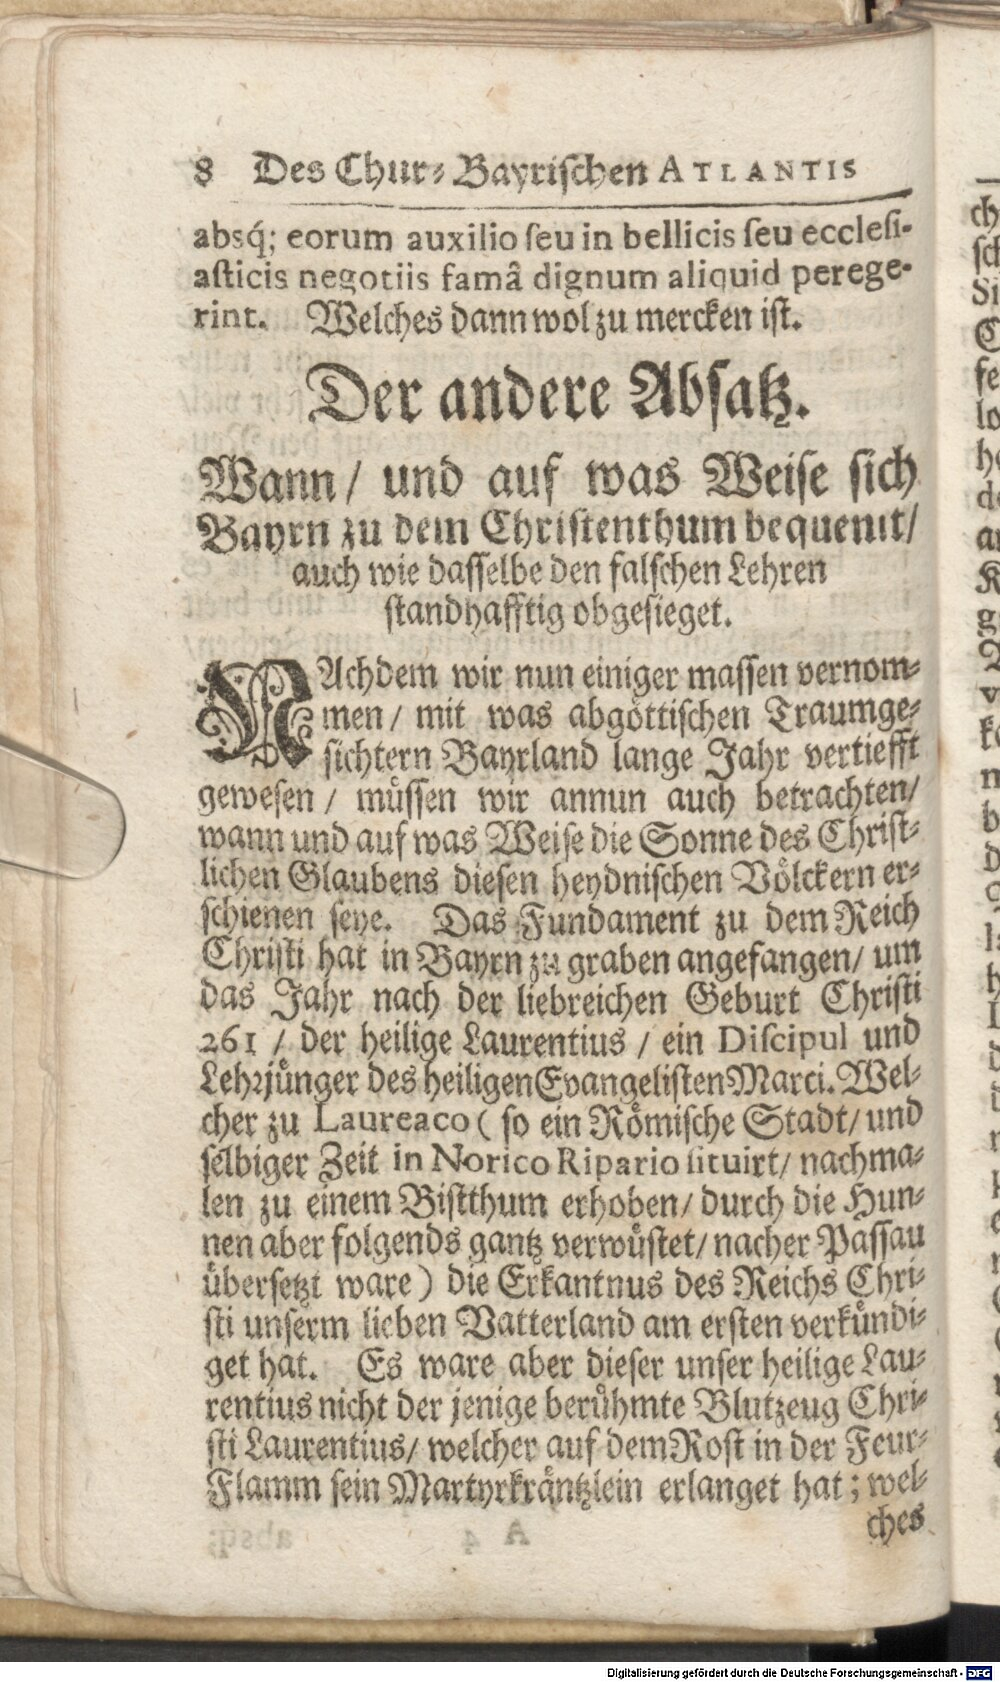 8 Des Chur-Bayrischen ATLANTIS
absq́; eorum auxilio ſeu in bellicis ſeu eccleſi-
aſticis negotiis famâ dignum aliquid perege-
rint. Welches dann wol zu mercken iſt.
Der andere Abſatz.
Wann / und auf was Weiſe ſich
Bayrn zu dem Chriſtenthum bequemt /
auch wie daſſelbe den falſchen Lehren
ſtandhafftig obgeſieget.
NAchdem wir nun einiger maſſen vernom-
men / mit was abgöttiſchen Traumge-
ſichtern Bayrland lange Jahr vertiefft
geweſen / müſſen wir annun auch betrachten /
wann und auf was Weiſe die Sonne des Chriſt-
lichen Glaubens dieſen heydniſchen Völckern er-
ſchienen ſeye. Das Fundament zu dem Reich
Chriſti hat in Bayrn zu graben angefangen / um
das Jahr nach der liebreichen Geburt Chriſti
261 / der heilige Laurentius / ein Diſcipul und
Lehrjünger des heiligen Evangeliſten Marci. Wel-
cher zu Laureaco ( ſo ein Römiſche Stadt / und
ſelbiger Zeit in Norico Ripario ſituirt / nachma-
len zu einem Biſtthum erhoben / durch die Hun-
nen aber folgends gantz verwüſtet / nacher Paſſau
überſetzt ware ) die Erkantnus des Reichs Chri-
ſti unſerm lieben Vatterland am erſten verkündi-
get hat. Es ware aber dieſer unſer heilige Lau-
rentius nicht der jenige berühmte Blutzeug Chri-
ſti Laurentius / welcher auf dem Roſt in der Feur-
Flamm ſein Martyrkräntzlein erlanget hat ; wel-
ches
Digitalisierung gefördert durch die Deutsche Forschungsgemeinschaft - DFG